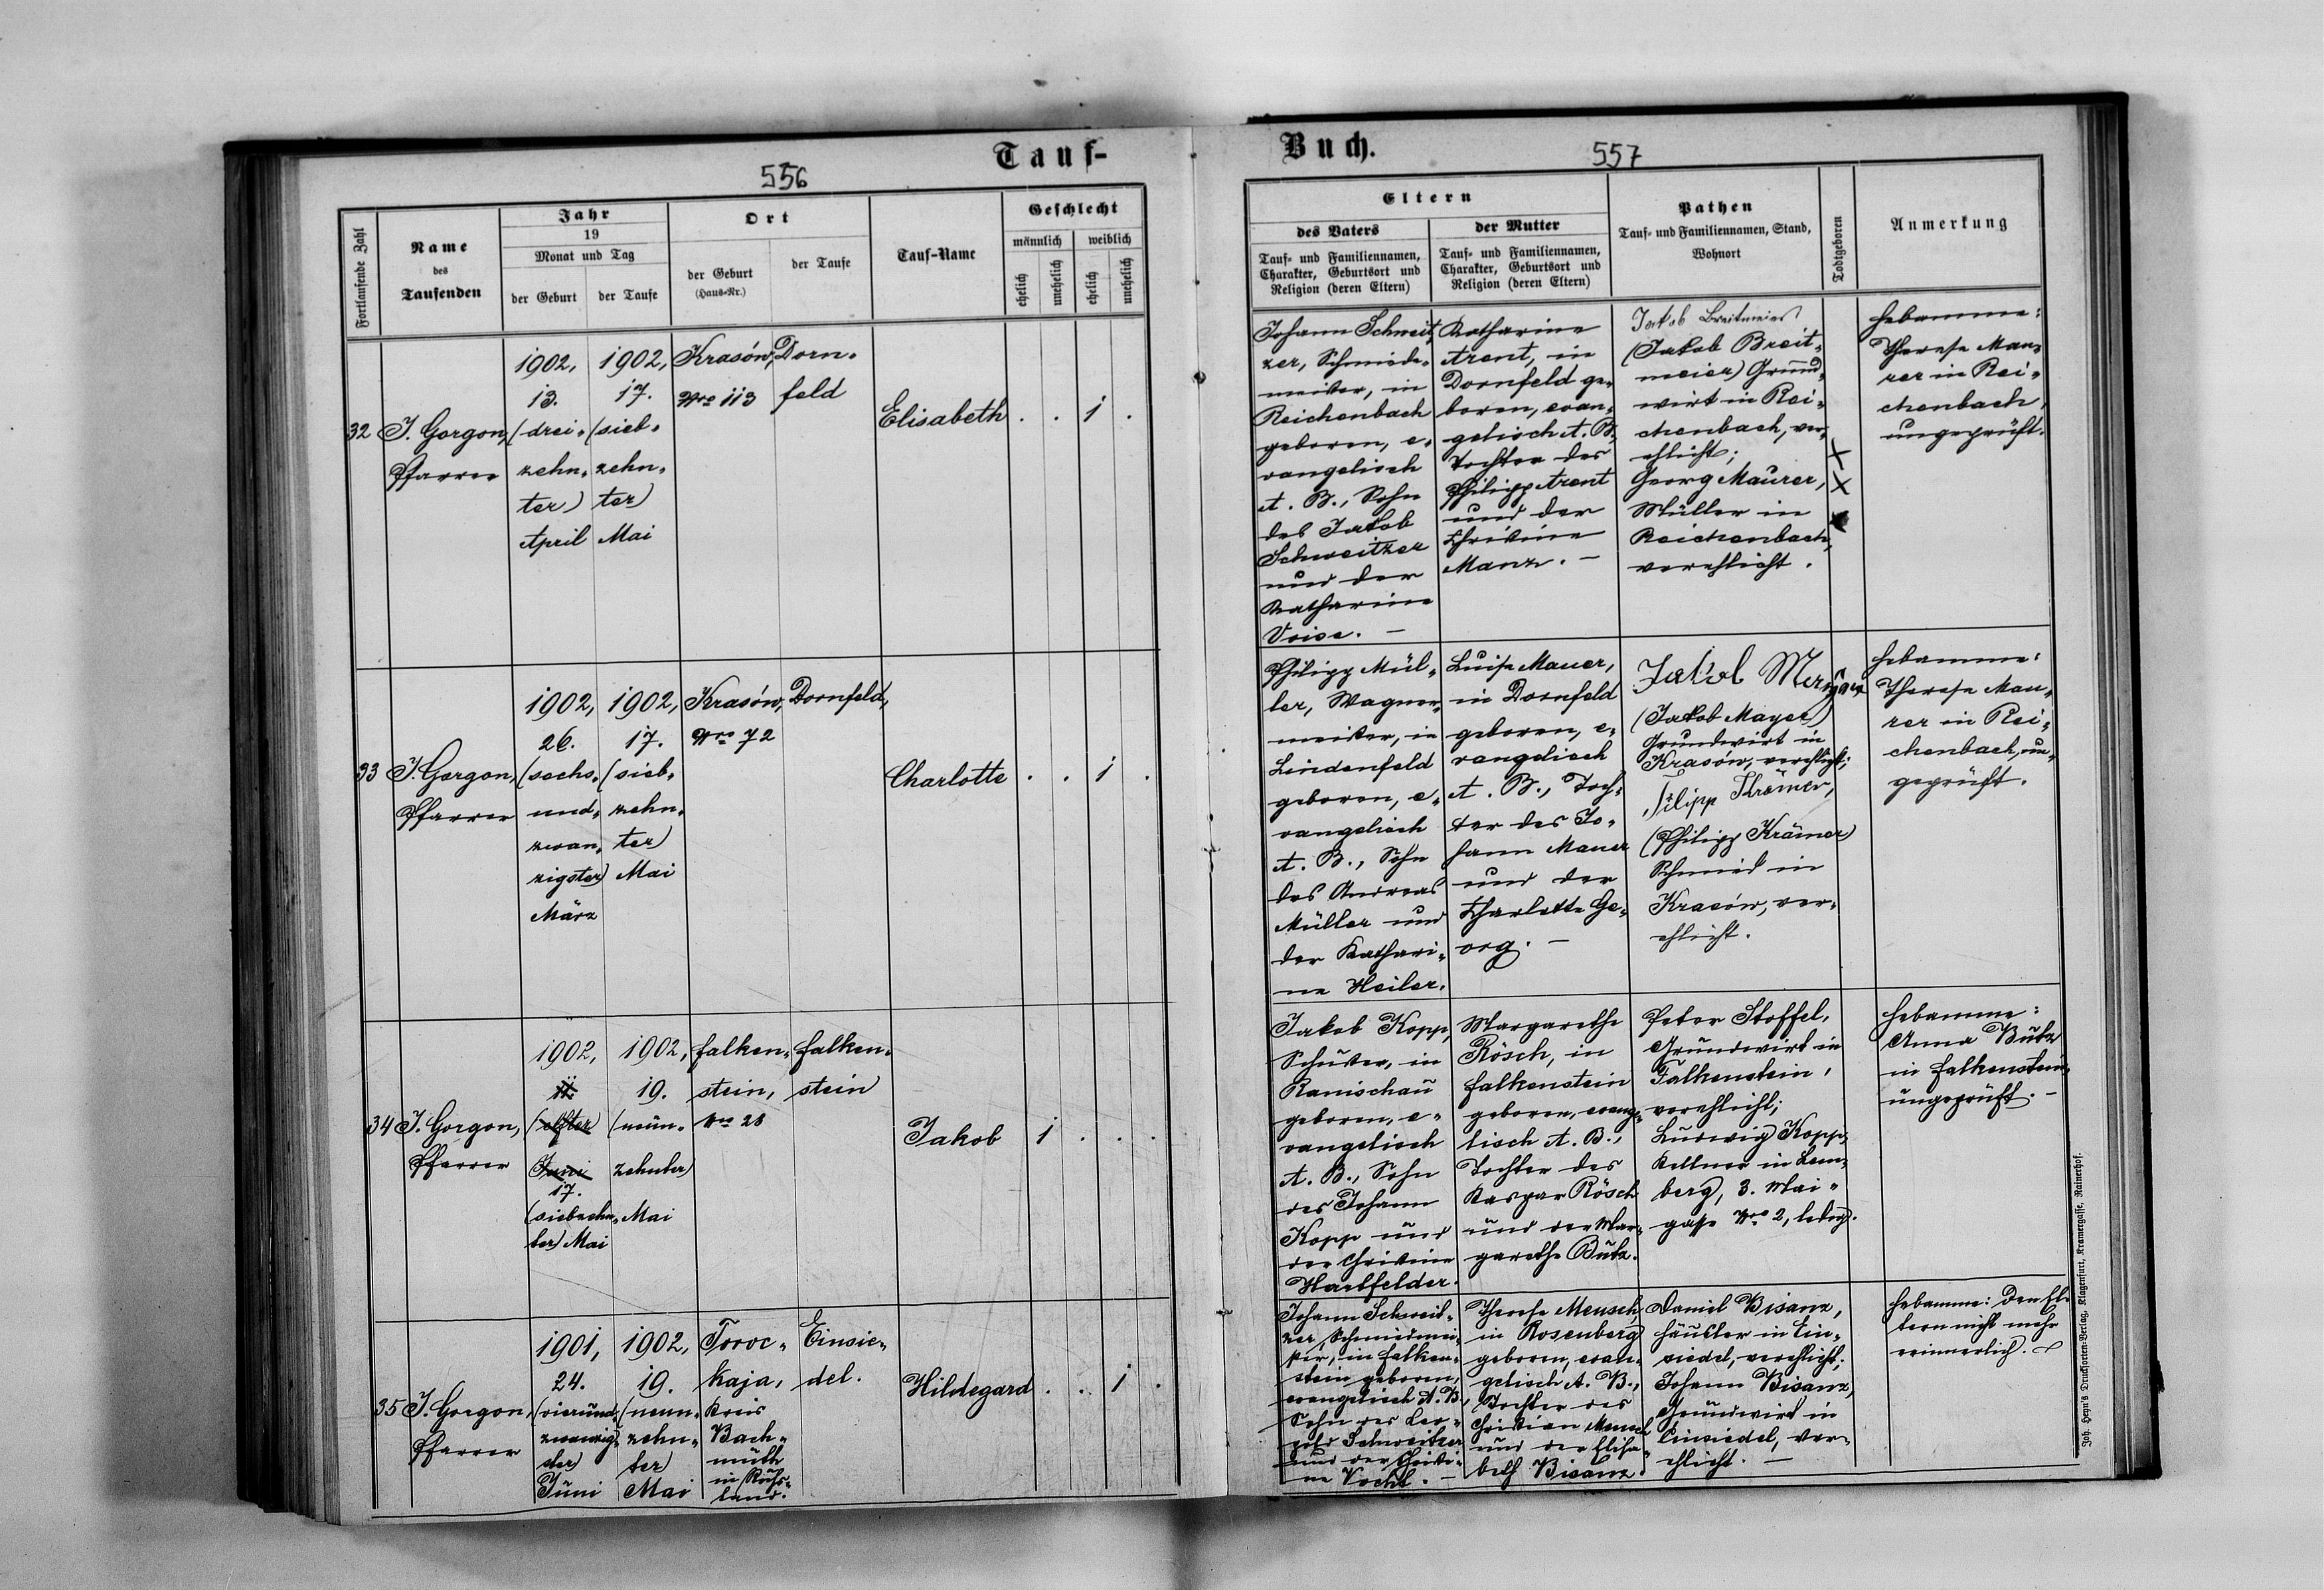 556
Tauf-
Fortlaufende Zahl
Name
des
Taufenden
Jahr
19
Monat und Tag
der Geburt
der Taufe
Ort
der Geburt
(Haus-Nr.)
der Taufe
Tauf-Name
Geschlecht
männlich
weiblich
ehelich
unehelich
ehelich
unehelich
32
J. Gorgon,
Pfarrer
1902,
13.
(drei-
zehn-
ter)
April
1902,
17.
(sieb-
zehn-
ter)
Mai
Krasów,
Nro 113
Dorn-
feld
Elisabeth
. . 1 .
33
J. Gorgon,
Pfarrer
1902,
26.
(sechs-
und-
zwan-
zigster)
März
1902,
17.
(sieb-
zehn-
ter)
Mai
Krasów,
Nro 72
Dornfeld,
Charlotte
. . 1 .
34
J. Gorgon,
Pfarrer
1902,
11.
(elfter)
Juni
17.
(siebzehn-
ter) Mai
1902,
19.
(neun-
zehnter)
Mai
Falken-
stein,
Nro 28
Falken-
stein
Jakob
1 . . .
35
J. Gorgon,
Pfarrer
1901,
24.
(vierund-
zwanzig-
ster)
Juni
1902,
19.
(neun-
zehn-
ter)
Mai
Toroc-
kaja,
Kreis
Bach-
müth
in Russ-
land.
Einsie-
del.
Hildegard
. . 1 .
Buch.
557
Eltern
des Vaters
Tauf- und Familiennamen,
Charakter, Geburtsort und
Religion (deren Eltern)
der Mutter
Tauf- und Familiennamen,
Charakter, Geburtsort und
Religion (deren Eltern)
Pathen
Tauf- und Familiennamen, Stand,
Wohnort
Todtgeboren
Anmerkung
Johann Schweit-
zer, Schmiede-
meister, in
Reichenbach
geboren, e-
vangelisch
A. B., Sohn
des Jakob
Schweitzer
und der
Katharine
Voise. —
Katharine
Arent, in
Dornfeld ge-
boren, evan-
gelisch A. B.,
Tochter des
Philipp Arent
und der
Christine
Manz. —
Jakob Breitmeier
(Jakob Breit-
meier) Grund-
wirt in Rei-
chenbach, ver-
ehlicht;
Georg Maurer,
Müller in
Reichenbach,
verehlicht.
Hebamme:
Therese Mau-
rer in Rei-
chenbach,
ungeprüft.
Philipp Mül-
ler, Wagner-
meister, in
Lindenfeld
geboren, e-
vangelisch
A. B., Sohn
des Andreas
Müller und
der Kathari-
ne Heiler.
Luise Mauer,
in Dornfeld
geboren, e-
vangelisch
A. B., Toch-
ter des Jo-
hann Mauer
und der
Charlotte Ge-
org. —
Jakob
(Jakob Mayer)
Grundwirt in
Krasów, verehlicht;
Filipp Krämer,
(Philipp Krämer)
Schmied in
Krasów, ver-
ehlicht.
Hebamme:
Therese Mau-
rer in Rei-
chenbach, un-
geprüft.
Jakob Kopp,
Schuster, in
Ranischau
geboren, e-
vangelisch
A. B., Sohn
des Johann
Kopp und
der Christine
Hartfelder.
Margarethe
Rösch, in
Falkenstein
geboren, evange-
lisch A. B.,
Tochter des
Kaspar Rösch
und der Mar-
garethe Butz.
Peter Stoffel,
Grundwirt in
Falkenstein,
verehlicht;
Ludwig Kopp,
Kellner in Lem-
berg, 3. Mai-
gasse Nro 2, ledig.
Hebamme:
Anna Butz
in Falkenstein,
ungeprüft. —
Johann Schweit-
zer, Schmiedmei-
ster, in Falken-
stein geboren,
evangelisch A. B.,
Sohn des Leo-
pold Schweitzer
und der Christi-
ne Vochl. —
Therese Mensch,
in Rosenberg
geboren, evan-
gelisch A. B.,
Tochter des
Christian Mensch
und der Elisa-
beth Bisanz.
Daniel Bisanz,
Häusler in Ein-
siedel, verehlicht;
Johann Bisanz,
Grundwirt in
Einsiedel, ver-
ehlicht. —
Hebamme: Den El-
tern nicht mehr
erinnerlich.
Joh. Heyn's Drucksorten-Verlag, Klagenfurt, Kramergasse, Rainerhof.